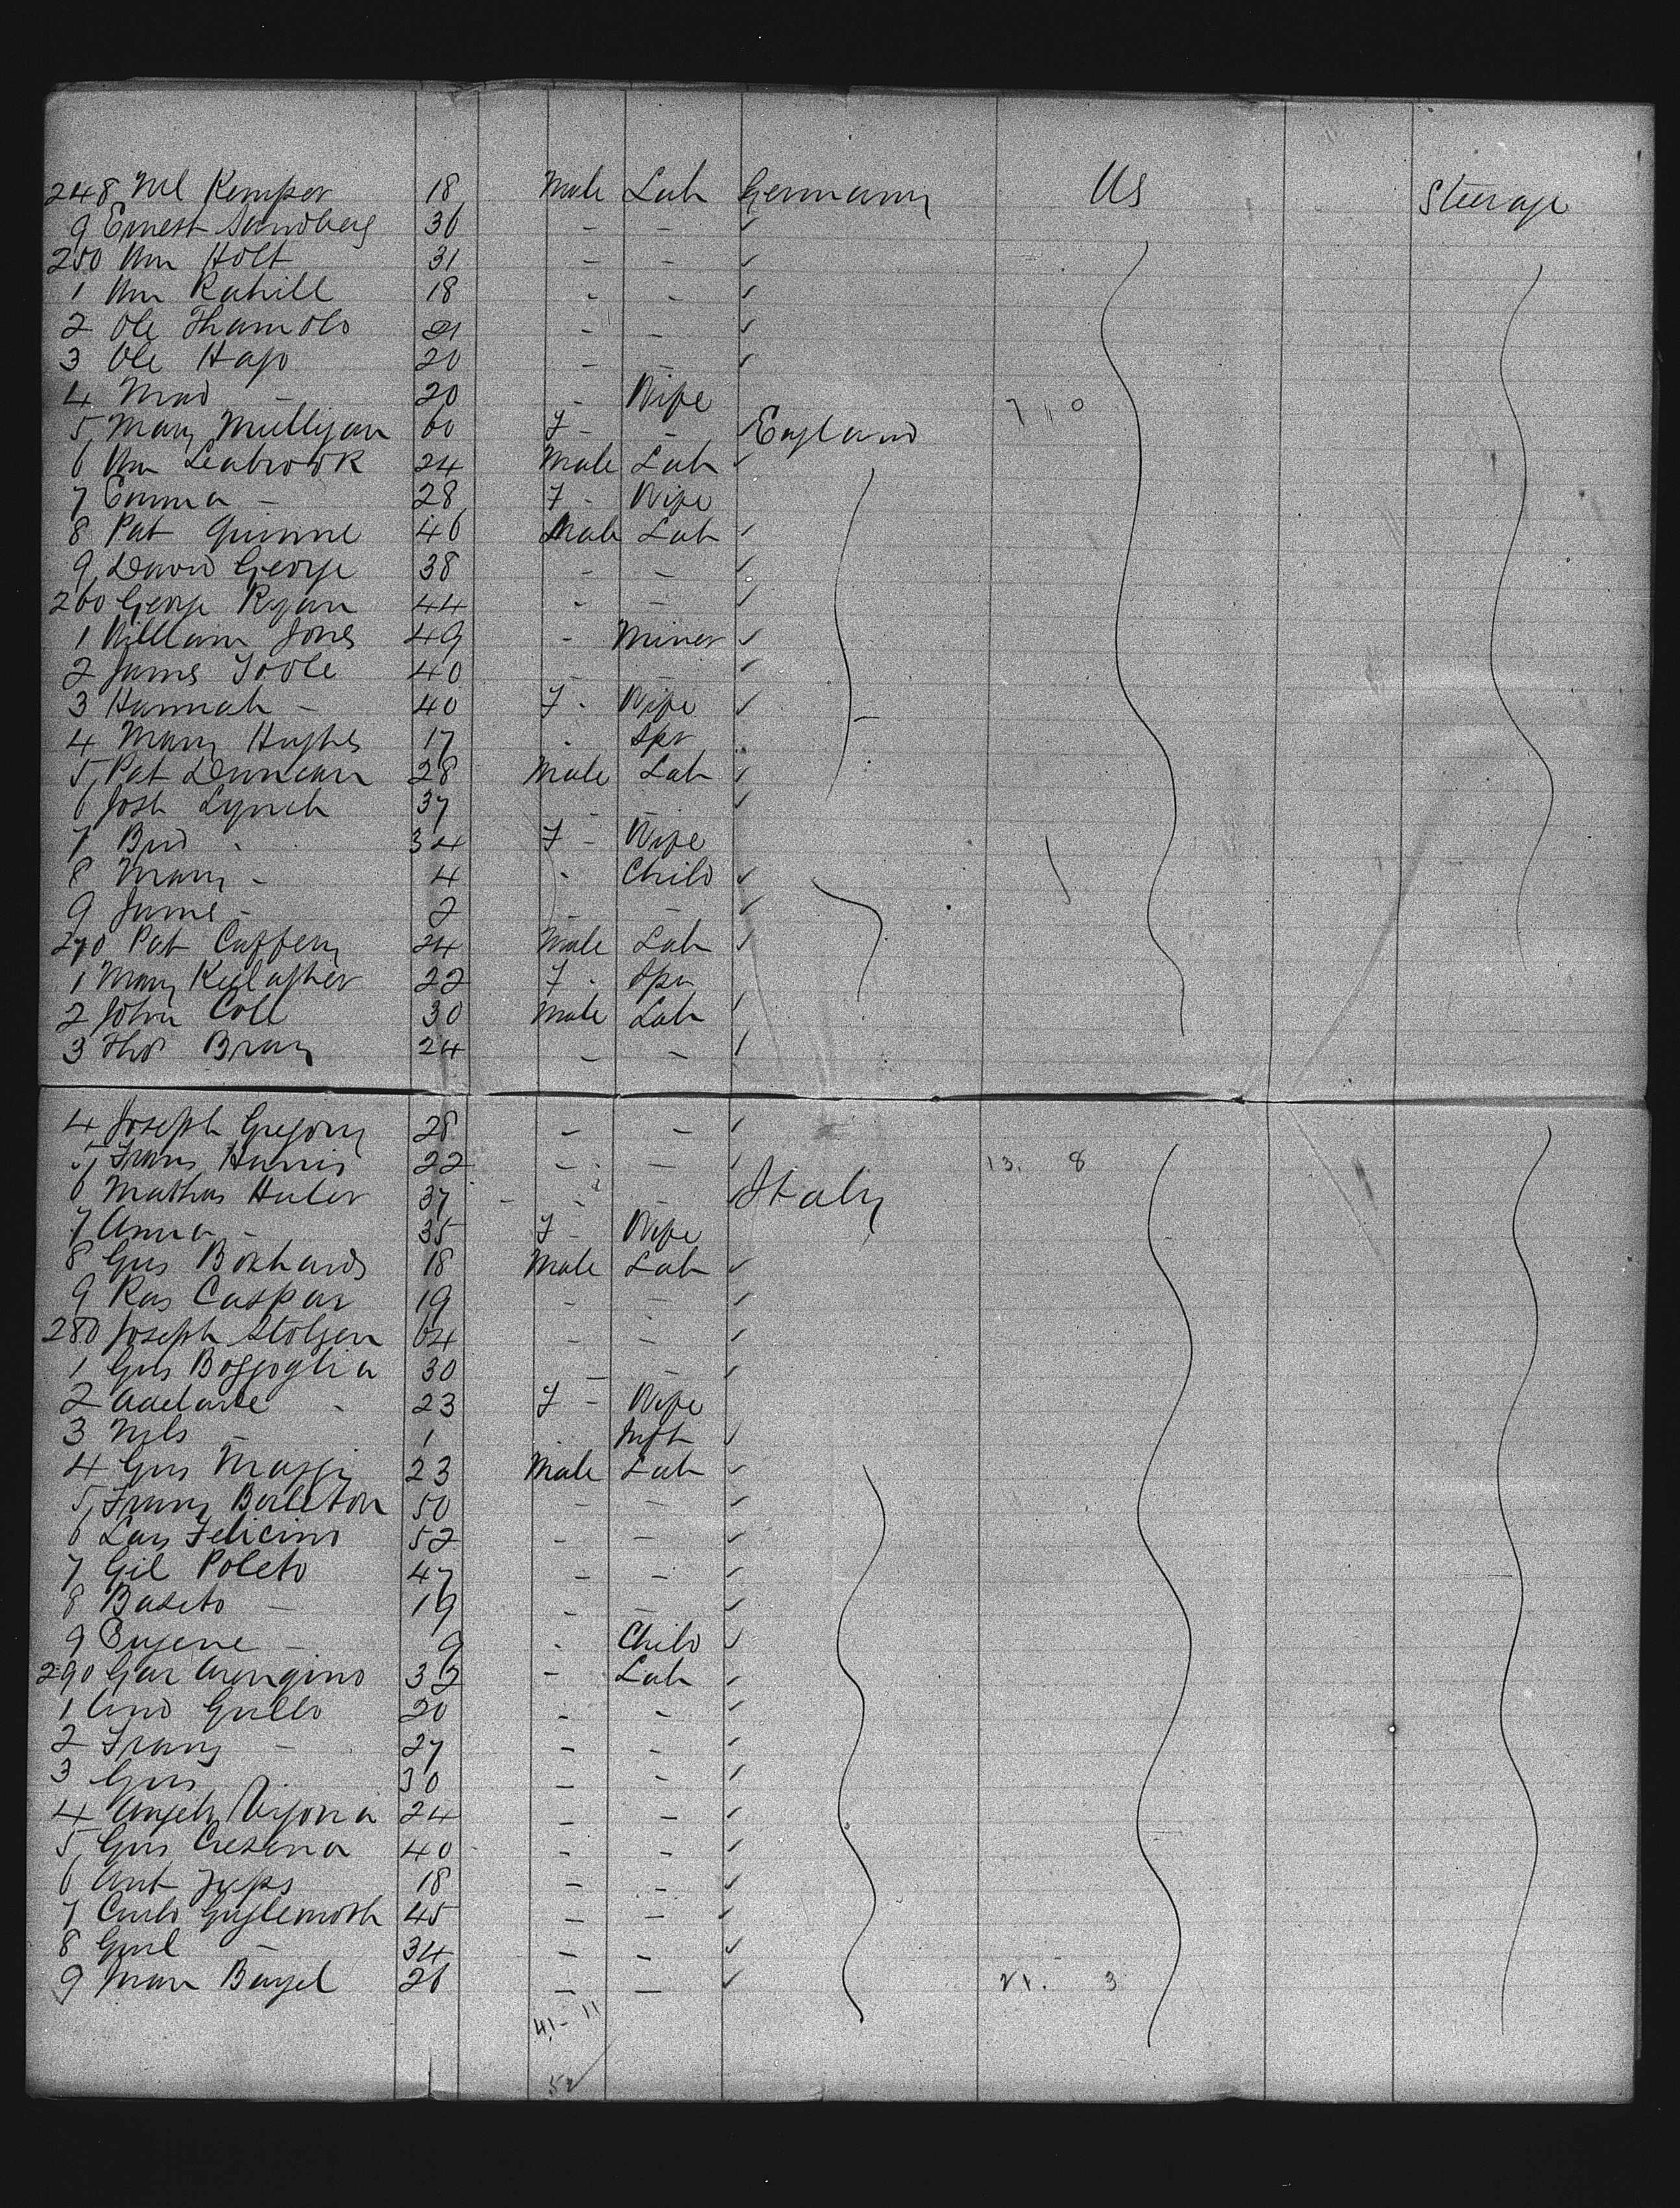 248 Ml Kemper 18 Male Lab Germany US Steerage
9 Ernest Sandberg 36 - - ✓
250 Wm Holt 31 - - ✓
1 Wm Rahill 18 - - ✓
2 Ole 21 - - ✓
3 Ole Hajo 20 - - ✓
4 - 20 - Wife 7 11 0
5 Mary Mulligan 60 F - - England
6 Wm Leabrook 24 Male Lab ✓
7 Emma - 28 F - Wife
8 Pat Quinne 46 Male Lab ✓
9 David George 38 - - ✓
260 George Ryan 44 - - ✓
1 William Jones 49 - Miner ✓
2 James Toole 40 - - ✓
3 Hannah - 40 F - Wife ✓
4 Mary Hughes 17 - Spr
5 Pat Duncan 28 Male Lab ✓
6 Josh Lynch 37 - - ✓
7 Brid - 34 F - Wife
8 Mary - 4 - Child ✓
9 Jame - 2 - - ✓
270 Pat Caffery 24 Male Lab ✓
1 Mary 22 F - Spr
2 John Coll 30 Male Lab ✓
3 Tho Bray 24 - - ✓
4 Joseph Gregory 28 - - ✓
5 Frans Harris 22 - - ✓ 13. 8
6 Mathas Huber 37 - - - Italy
7 Anna - 35 F - Wife
8 Gus 18 Male Lab ✓
9 Ras Caspar 19 - - ✓
280 Joseph Stolzen 64 - - ✓
1 Gus 30 - - ✓
2 Adelaide - 23 F - Wife
3 Nels - 1 - Inft ✓
4 Gus Maggi 23 Male Lab ✓
5 Franz 50 - - ✓
6 Felicino 52 - - ✓
7 Gil Poleto 47 - - ✓
8 Baseto - 19 - - ✓
9 Eugene - 9 - Child ✓
290 Gar 32 - Lab ✓
1 And Gullo 20 - - ✓
2 Franz - 27 - - ✓
3 Gus - 30 - - ✓
4 Angelo Vigona 24 - - ✓
5 Gus Cresena 40 - - ✓
6 Ant 18 - - ✓
7 Carlo 45 - - ✓
8 - 34 - - ✓
9 26 - - ✓ 21. 3
41 - 11
52